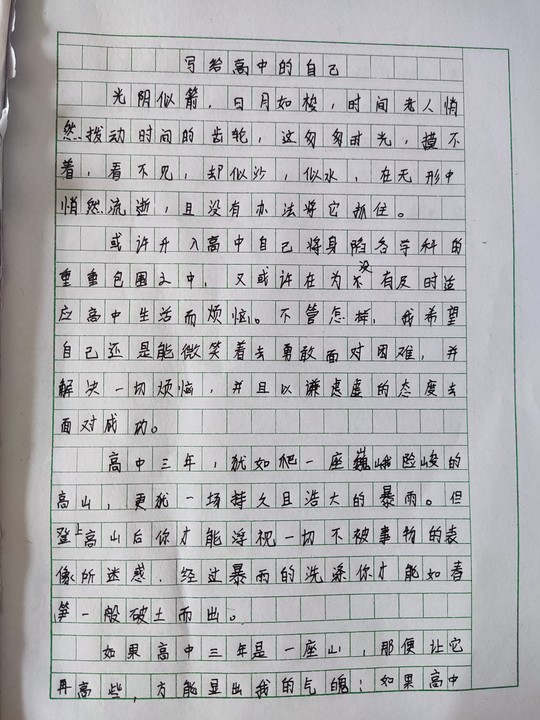 写给高中的自己
光阴似箭，日月如梭，时间老人悄
然拨动时间的齿轮，这匆匆时光，摸不
着，看不见，却似沙，似水，在无形中
悄然流逝，且没有办法将它抓住。
或许升入高中自己将身陷各学科的
重重包围之中，又或许在为没有及时适
应高中生活而烦恼。不管怎样，我希望
自己还是能微笑着去勇敢面对困难，并
解决一切烦恼，并且以谦虚的态度去
面对成功。
高中三年，犹如爬一座巍峨险峻的
高山，更犹一场持久且浩大的暴雨。但
登上高山后你才能俯视一切不被事物的表
像所迷惑，经过暴雨的洗涤你才能如春
笋一般破土而出。
如果高中三年是一座山，那便让它
再高些，方能显出我的气魄；如果高中